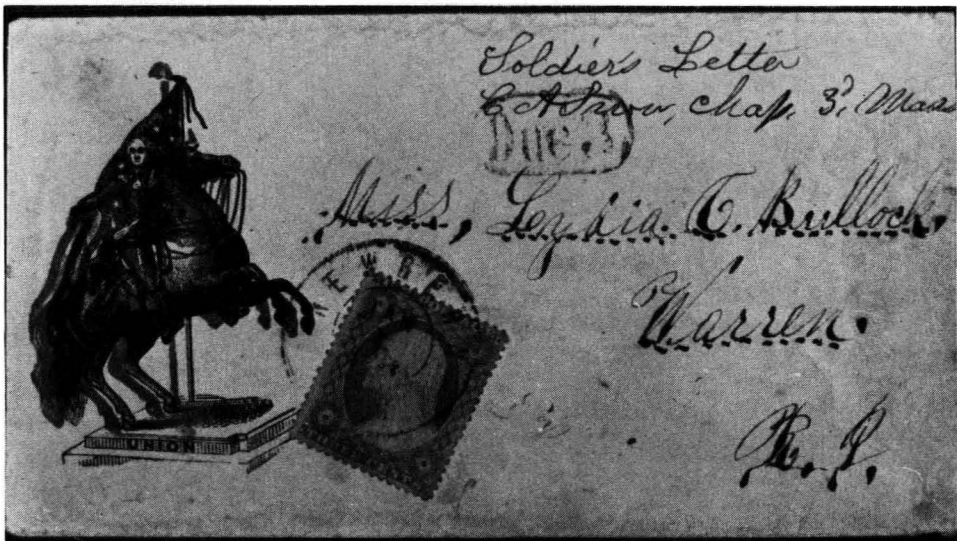 Soldier's Letter
C A Snow, Chap. 3d, Mass
Due. 3
Miss, Leydia. T. Bullock,
Warren.
R. I.
NEW BE
UNION